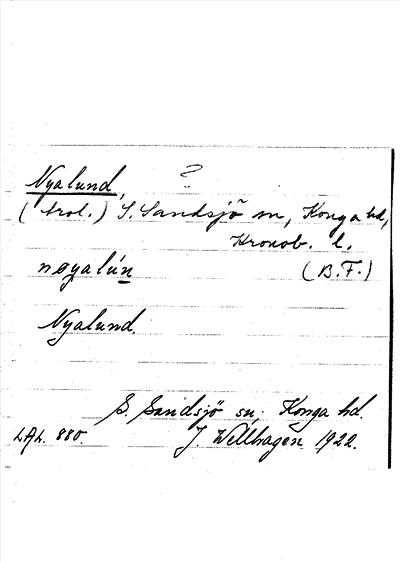 Nyalund, ?
(trol.) S. Sandsjö sn, Konga hd,
Kronob. l.
nøyalún (B.F.)
Nyalund.
S. Sandsjö sn, Konga hd.
LAL. 880. J. Wellhagen 1922.